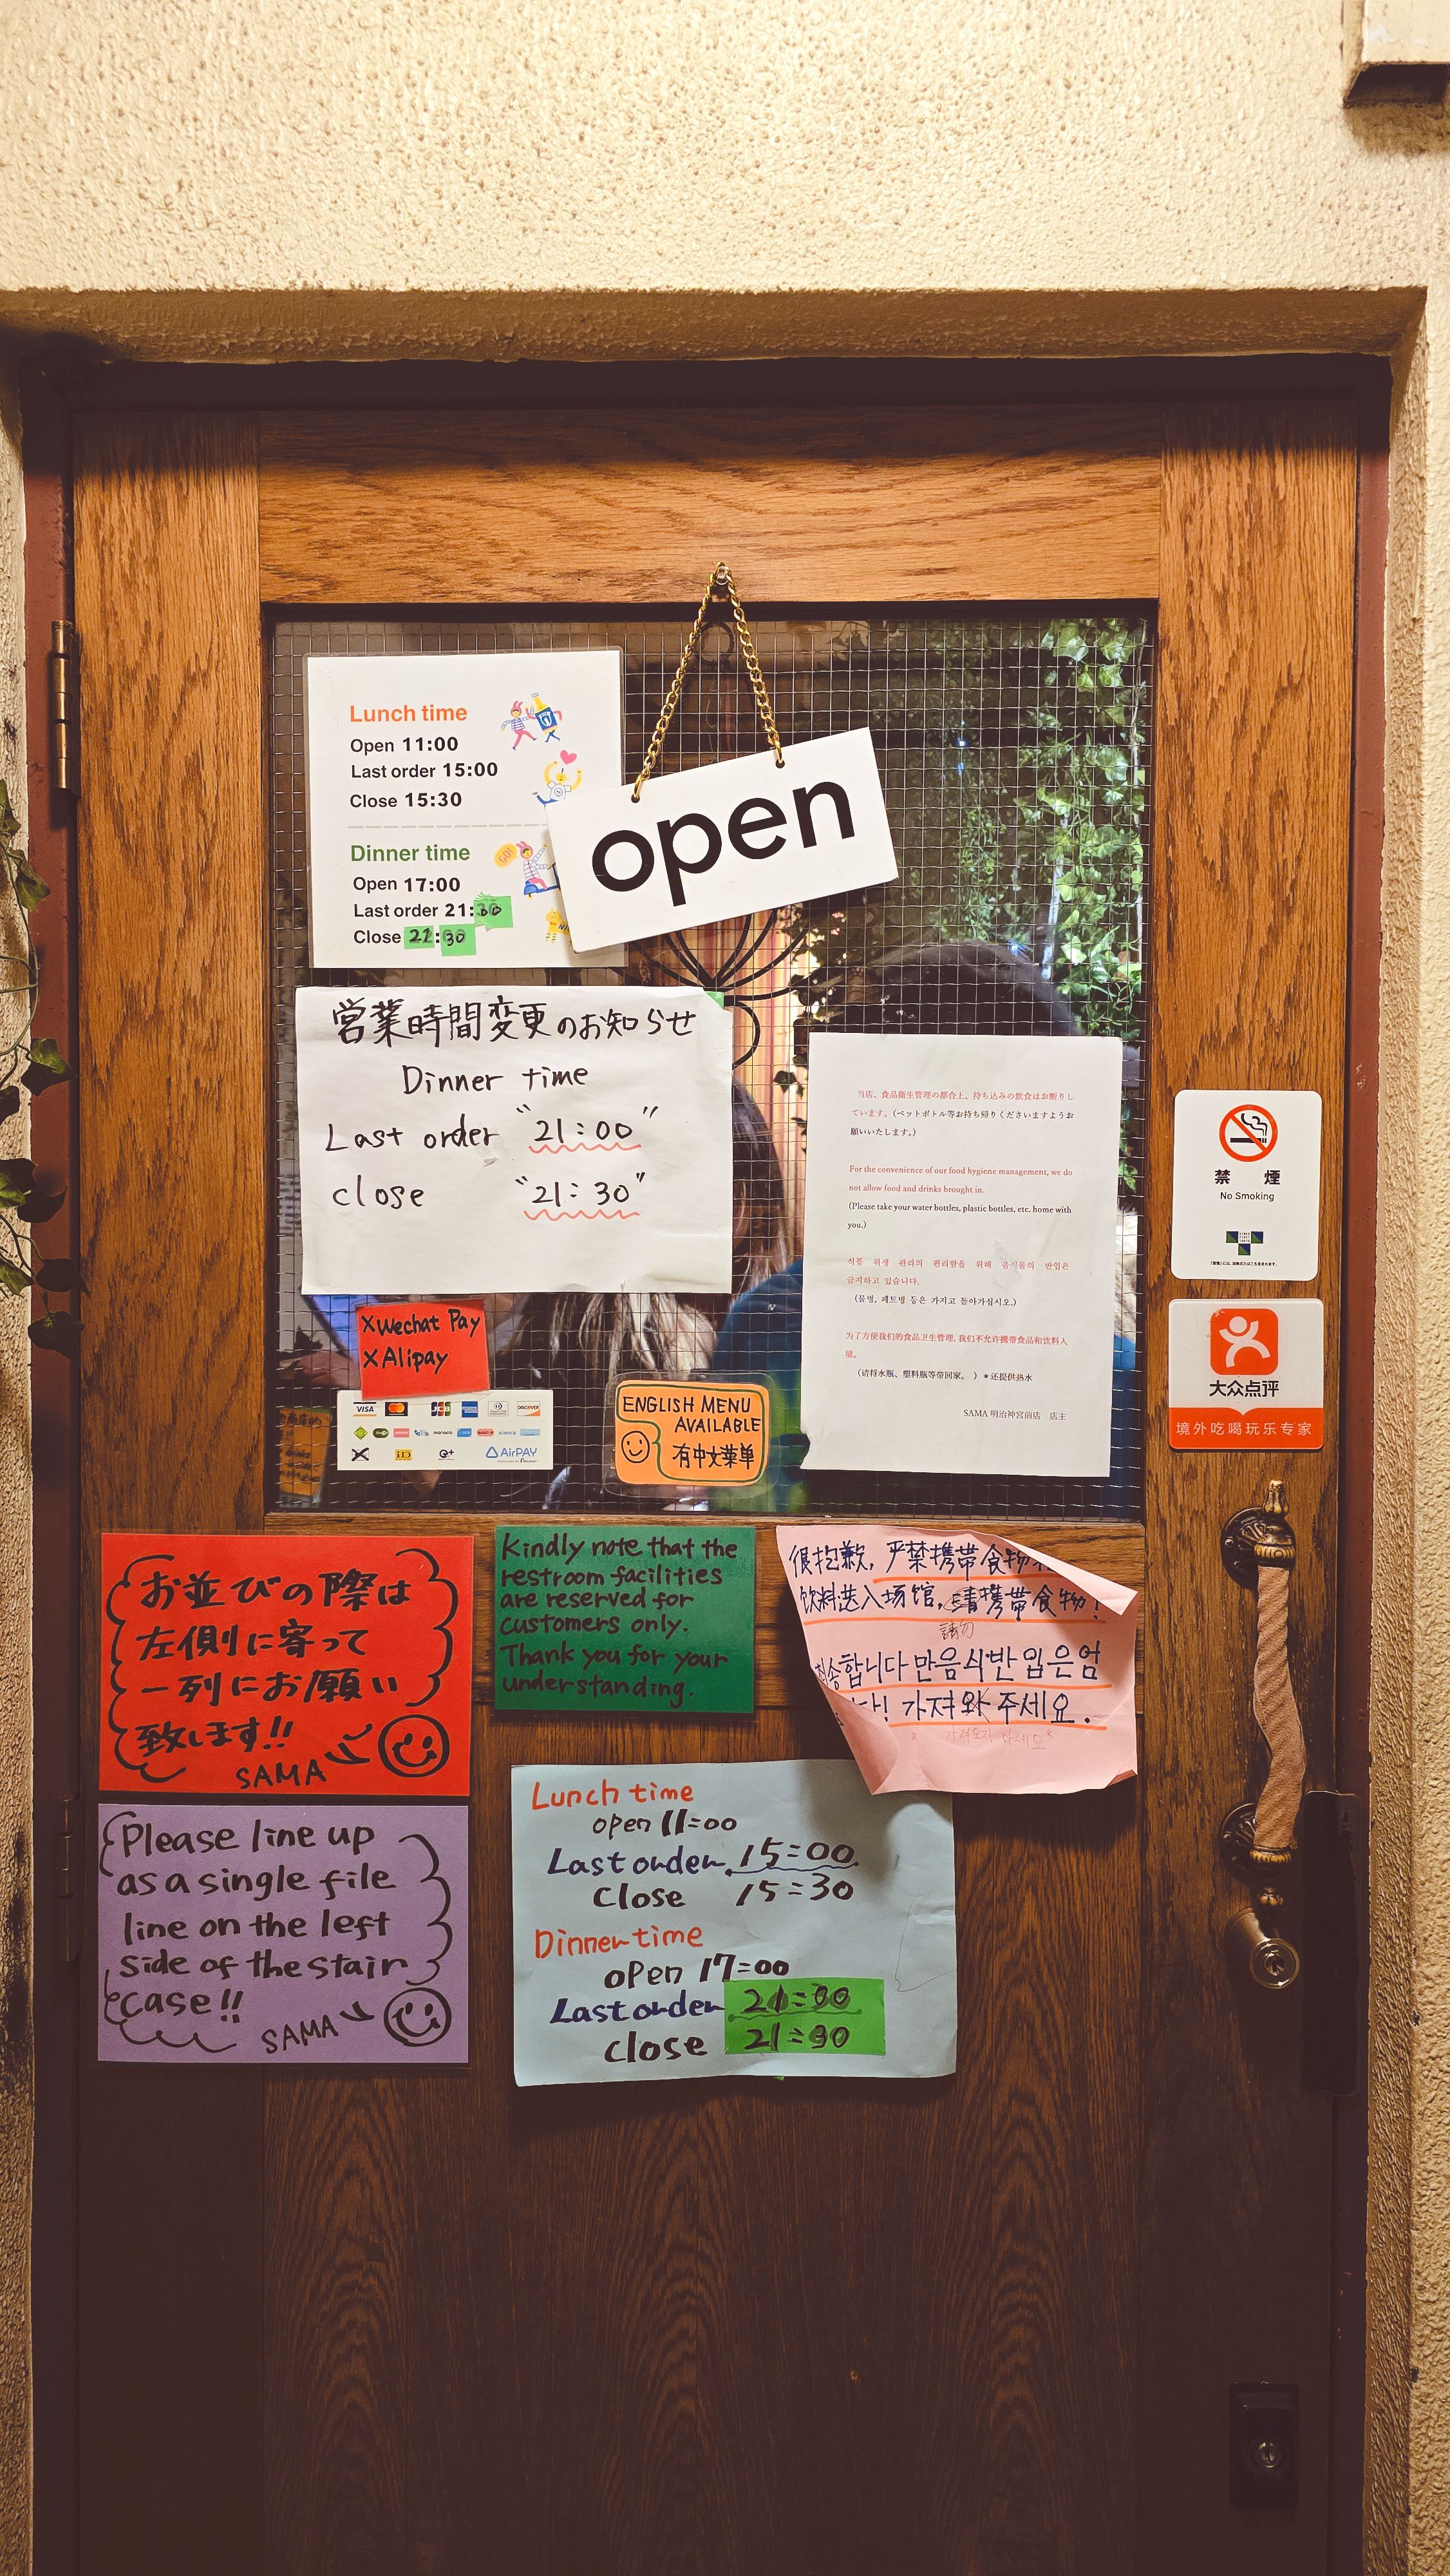 Lunch time
Open 11:00
Last order 15:00
Close 15:30
Dinner time
Open 17:00
Last order 21:
Close 21:30
GO!
open
営業時間変更のお知らせ
Dinner time
Last order "21:00"
close "21:30"
当店、食品衛生管理の都合上、持ち込みの飲食はお断りし
ています。（ペットボトル等お持ち帰りくださいますようお
願いいたします。）
For the convenience of our food hygiene management, we do
not allow food and drinks brought in.
(Please take your water bottles, plastic bottles, etc. home with
you.)
식품 위생 관리의 편리함을 위해 음식물의 반입은
금지하고 있습니다.
(물병, 페트병 등은 가지고 돌아가십시오.)
为了方便我们的食品卫生管理, 我们不允许携带食品和饮料入
境。
（请将水瓶、塑料瓶等带回家。 ）＊还提供热水
SAMA 明治神宮前店 店主
XWechat Pay
XAlipay
VISA JCB DISCOVER
iD Q+ AirPAY
ENGLISH MENU
AVAILABLE
有中文菜单
禁 煙
No Smoking
大众点评
境外吃喝玩乐专家
お並びの際は
左側に寄って
一列にお願い
致します!!
SAMA
Kindly note that the
restroom facilities
are reserved for
customers only.
Thank you for your
understanding.
很抱歉, 严禁携带食物
饮料进入场馆, 請携带食物!
請勿
합니다만음식반입은엄
다! 가져와 주세요.
가져오지 마세요
Please line up
as a single file
line on the left
side of the stair
case!!
SAMA
Lunch time
open 11:00
Last order 15:00
Close 15:30
Dinner time
open 17:00
Last order 21:00
close 21:30